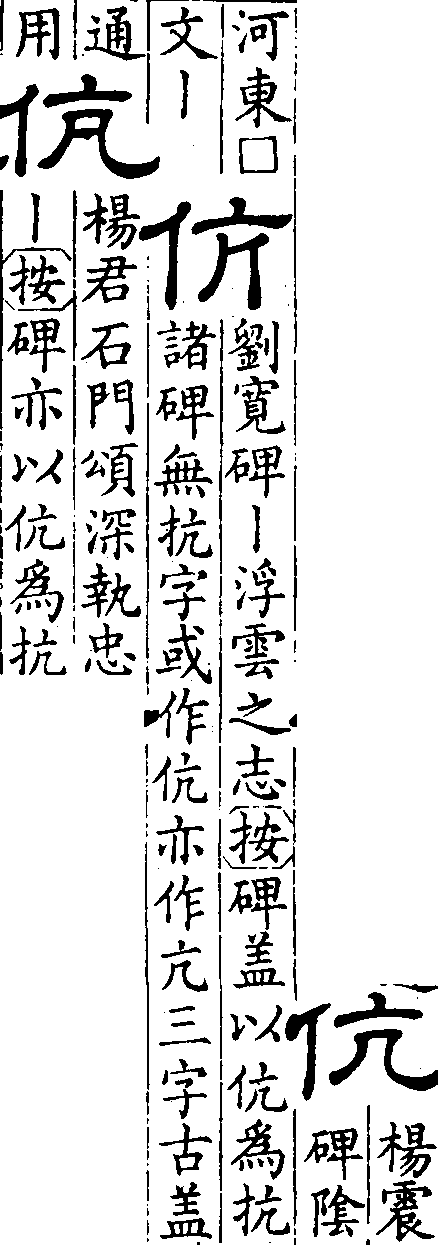 伉
楊震
碑陰
河東□
文丨
伉
劉寬碑丨浮雲之志按碑盖以伉爲抗
諸碑無抗字或作伉亦作亢三字古盖
通
用
伉
楊君石門頌深執忠
丨按碑亦以伉爲抗